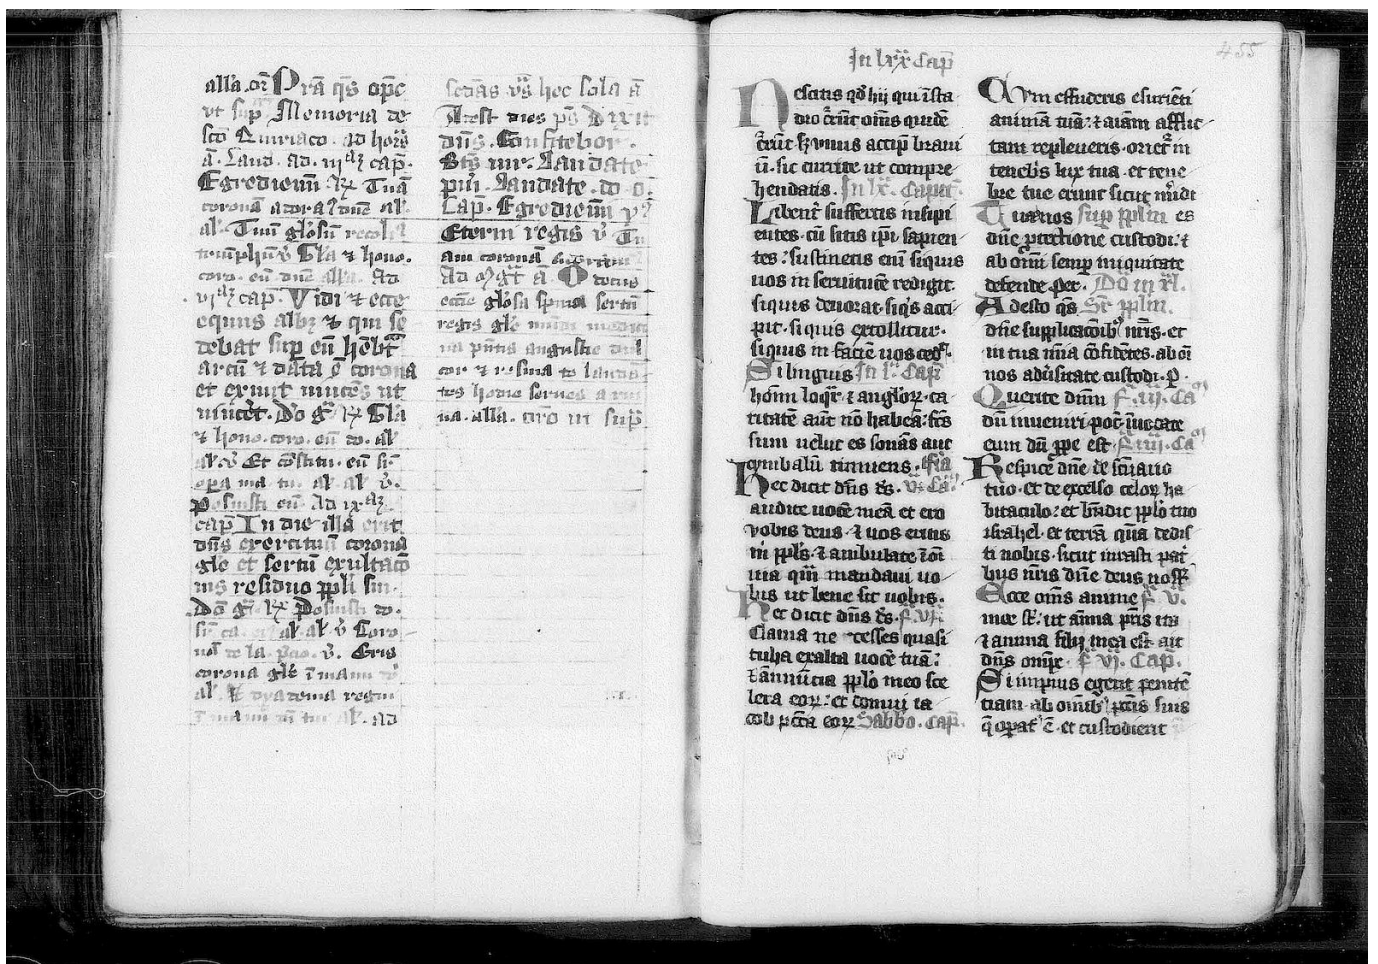 alla. or̄ Prā q̄s op̄e
vt sup Memoria de
sco Quiriaco. ad hoīs
ā. Laud. ad. iii. cap̄.
Egredieminī Tuā
coronā adora dn̄e al.
al. Tuū glōsū
v̄ Glā et hono.
coro. eū dn̄e alla. Ad
vi cap̄. Vidi et ecce
equus alb et qui se
debat sup eū hēbt
arcū et data ē corona
et exivit vincēs ut
vincet. Do gr̄. Glā
et hono. coro. eū do. al
al v̄ Et cōstitu. eū sr̄
opa ma. tu. al. al. v̄.
Posuisti eū. Ad ix
cap̄ In die illa erit
dn̄s exercituū corona
gle et sertū exultacō
nis residuo ppli sui.
Do gr̄. Posuisti do.
sr̄ ca. al. al. v̄ Coro
de la. v̄. Eris
corona gle ī manu
al. Et dyadema regni
ī manu tui al. Ad
secdas. v̄s hec sola ā
Adest dies ps̄ Dixit
dn̄s. Confitebor.
Bts vir. Laudate
pūi. Laudate. do o.
Cap̄. Egredieminī
Eterni regis v̄ Tu
am coronā adoram
Ad ā. O
ecce glōsa spinea sertū
regis gle mundi
na angustie dul
cor et
tes hodie serves a
na. alla. oro ut sup̄
In lxx Cap̄
455
Nescitis qd hij qui ī sta
dio currūt om̄s quidē
currūt s vnus accip bravi
ū. sic currite ut compre
hendatis. In lx. Capit.
Libent suffertis insipi
entes. cū sitis ip̄i sapien
tes: sustinetis enī siquis
uos in seruitutē redigit.
siquis deuorat. siq̄s acci
pit. siquis extollitur.
siquis in faciē uos cedit.
Si linguis In l. Cap̄
hoīm loqr. et anglor. ca
ritatē aut nō habeā. fcs
sum uelut es sonās aut
cymbalū tinniens. fria
Hec dicit dn̄s ds. v. Ca
audite uocē meā et ero
vobis deus. et uos eritis
m ppls. et ambulate ī oī
uia quā mandaui uo
bis ut bene sit uobis.
Hec dicit dn̄s ds. f. vi.
Clama ne cesses quasi
tuba exalta uocē tuā:
et annūcia pplo meo sce
lera eor: et domui ia
cob pcc̄a eor Sabbo. Cap̄.
Cvm effuderis esuriēti
animā tuā: et aīam afflic
tam repleueris. oriet in
tenebs lux tua. et tene
bre tue erunt sicut meridi
Tuere nos sup pplm es
dn̄e protectione custodi: et
ab om̄i semp iniquitate
defende. Per. Do iii xl.
Adesto q̄s Sr pplm.
dn̄e supplicacōib nr̄is. et
in tua mīa cōfidētes. ab oī
nos adūsitate custodi. p.
Querite dnm f. iii. Ca
dū inueniri pot. īuocate
eum dū ppe est. f. iiii. Ca
Respice dn̄e de sctuario
tuo. et de excelso celor ha
bitaculo: et bn̄dic pplo tuo
israhel. et terrā quā dedis
ti nobis. sicut iurasti pat
bus nr̄is dn̄e deus nosster
Ecce om̄s anime f. v.
mee st. ut aīma patris ita
et anima filij mea est. ait
dn̄s om̄ps. f. vi. Cap̄.
Si impius egerit penitē
tiam. ab om̄ib pctis suis
q̄ opat ē. et custodierit